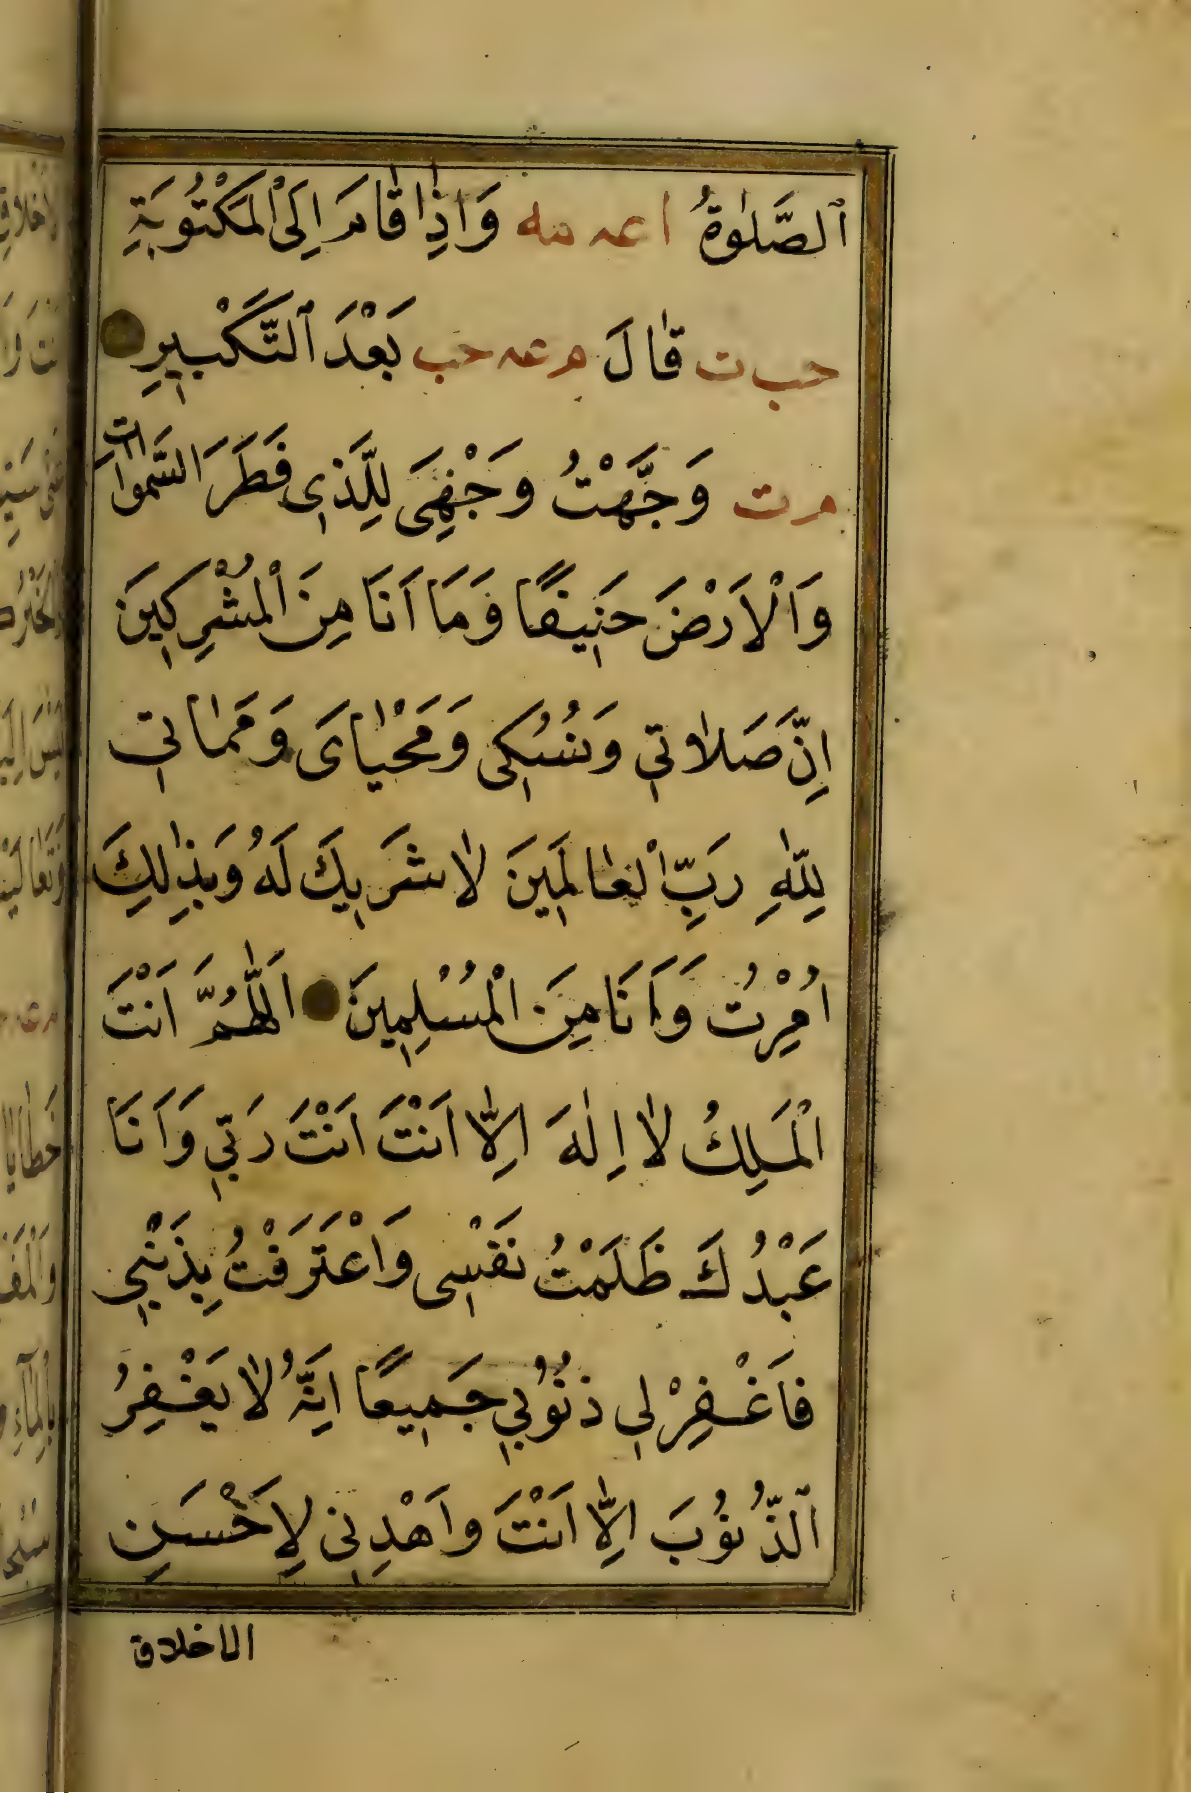 اَلصَّلٰوةُ ا عه مه وَاِذٰا قٰامَ اِلَى الْمَكْتُوبَةِ
حب ت قٰالَ م عه حب بَعْدَ التَّكْبِيرِ
م ت وَجَّهْتُ وَجْهِىَ لِلَّذِى فَطَرَ السَّمٰوَاتِ
وَالْاَرْضَ حَنِيفًا وَمَا اَنَا مِنَ الْمُشْرِكِينَ
اِنَّ صَلٰاوتِي وَنُسُكِى وَمَحْيٰاىَ وَمَمٰاتِي
لِلّٰهِ رَبِّ الْعٰالَمِينَ لٰا شَرِيكَ لَهُ وَبِذٰلِكَ
اُمِرْتُ وَاَنَا مِنَ الْمُسْلِمِينَ اَللّٰهُمَّ اَنْتَ
الْمَلِكُ لٰا اِلٰهَ اِلّٰا اَنْتَ اَنْتَ رَبِّي وَاَنَا
عَبْدُكَ ظَلَمْتُ نَفْسِى وَاعْتَرَفْتُ بِذَنْبِي
فَاغْفِرْلِي ذُنُوبِي جَمِيعًا اِنَّهُ لٰا يَغْفِرُ
الذُّنُوبَ اِلّٰا اَنْتَ وَاهْدِنِى لِاَحْسَنِ
الاخلاق